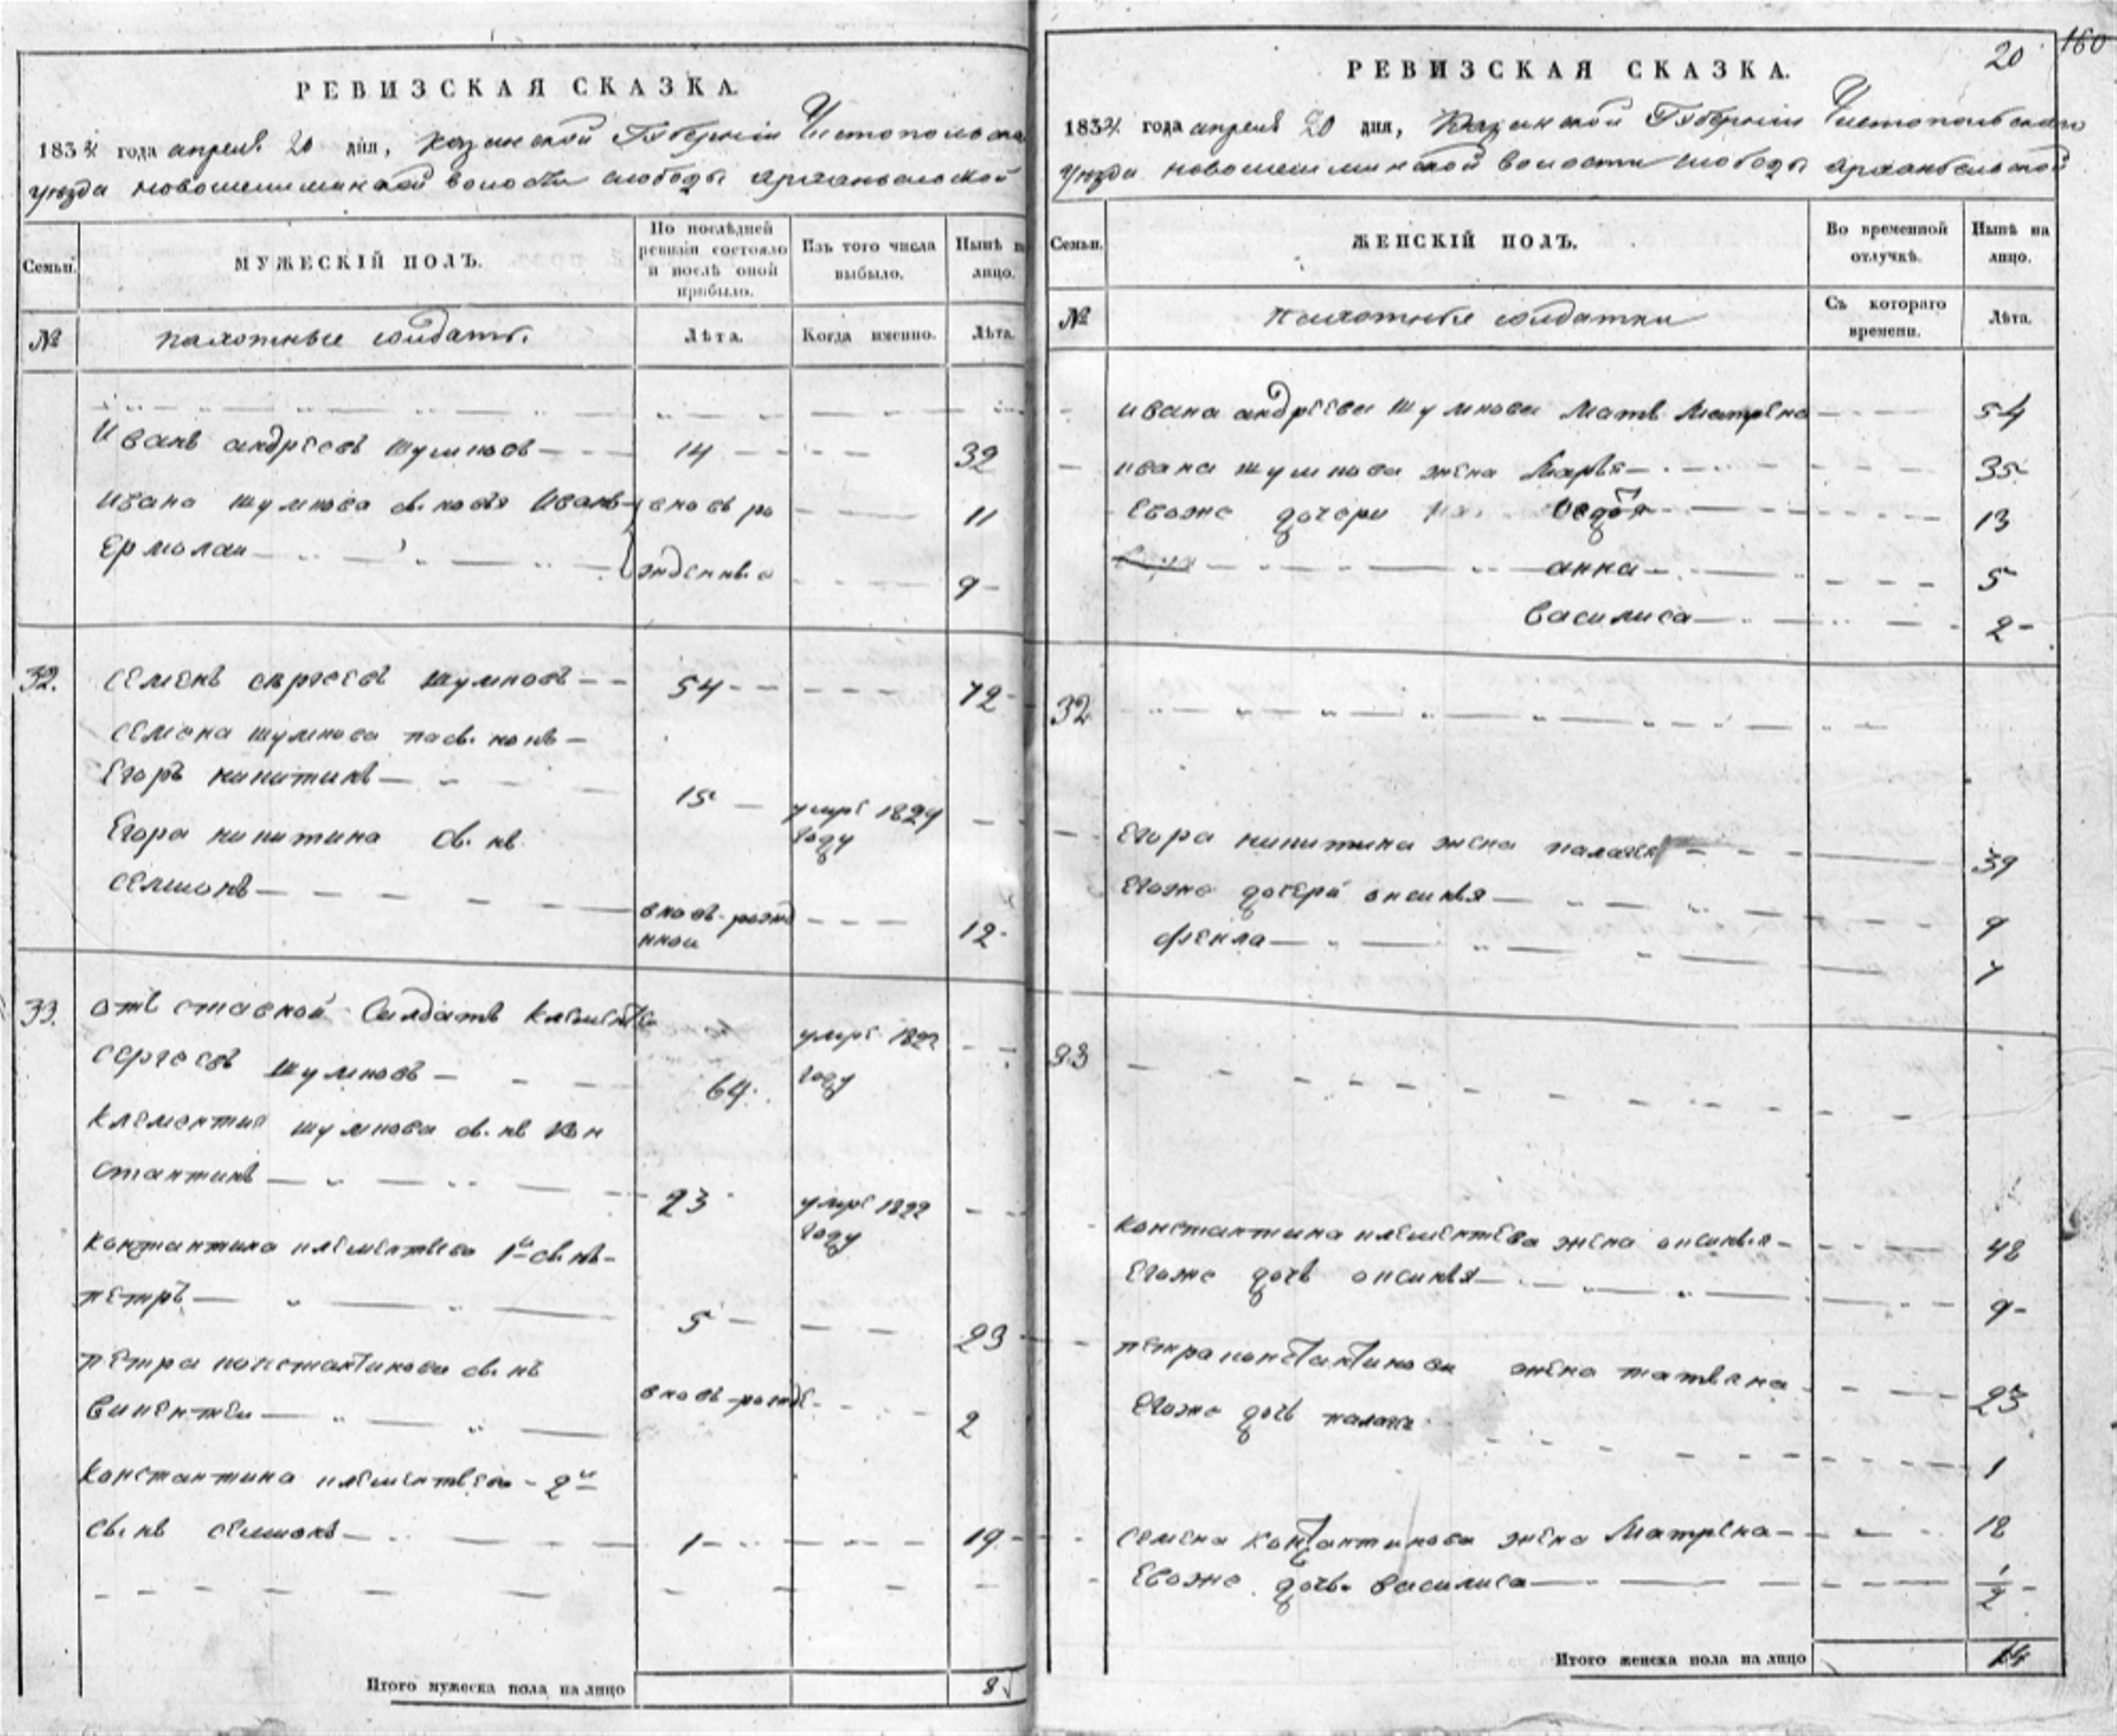 РЕВИЗСКАЯ СКАЗКА.
1834 года апреля 20 дня, Казанской Губернiи Чистопольска
уезда новошешминской волости слободы архангельской
Семьи.
МУЖЕСКIЙ ПОЛЪ.
По послѣдней ревизiи состояло и послѣ оной прибыло.
Изъ того числа выбыло.
Нынѣ н лицо.
№
пахотные солдаты.
Лѣта.
Когда именно.
Лѣта.
Иванъ андреевъ шумковъ 14 32
Ивана шумкова сновья Иванъ вновь ро 11
Ермолаи жденные 9
32. семенъ сергеевъ шумковъ 54 72
семена шумкова
Егоръ никитинъ 15 умре 1824 году
Егора никитина сынъ
семионъ вновь рожд нной 12
33. отъставной Салдатъ Клементеи
сергеевъ шумковъ 64 умре 1822 году
Клементия шумкова сынъ Кон
стантинъ 23 умре 1822 году
Константина клементьева 1й сынъ
петръ 5 23
петра константинова сынъ
Викентеи вновь рожде 2
Константина клементьева 2й
сынъ семионъ 1 19
Итого мужеска пола на лицо 8
20
160
РЕВИЗСКАЯ СКАЗКА.
1834 года апреля 20 дня, Казанской Губернiи Чистопольскаго
уезда новошешминской волости слободы архангельской
Семьи.
ЖЕНСКIЙ ПОЛЪ.
Во временной отлучкѣ.
Нынѣ на лицо.
№
пахотные солдатки
Съ котораго времени.
Лѣта.
ивана андреева шумкова мать матрена 54
ивана шумкова жена Марья 35
Евоже дочери 13
анна 5
Василиса 2
32
Егора никитина жена палагея 39
Евоже дочери оксинья 9
фекла 7
33
Константина клементьева жена оксинья 48
Евоже дочь оксинья 9
петра константинова жена татьяна 23
Евоже дочь палагея 1
семена константинова жена Матрена 18
Евоже дочь василиса 1/2
Итого женска пола на лицо 14